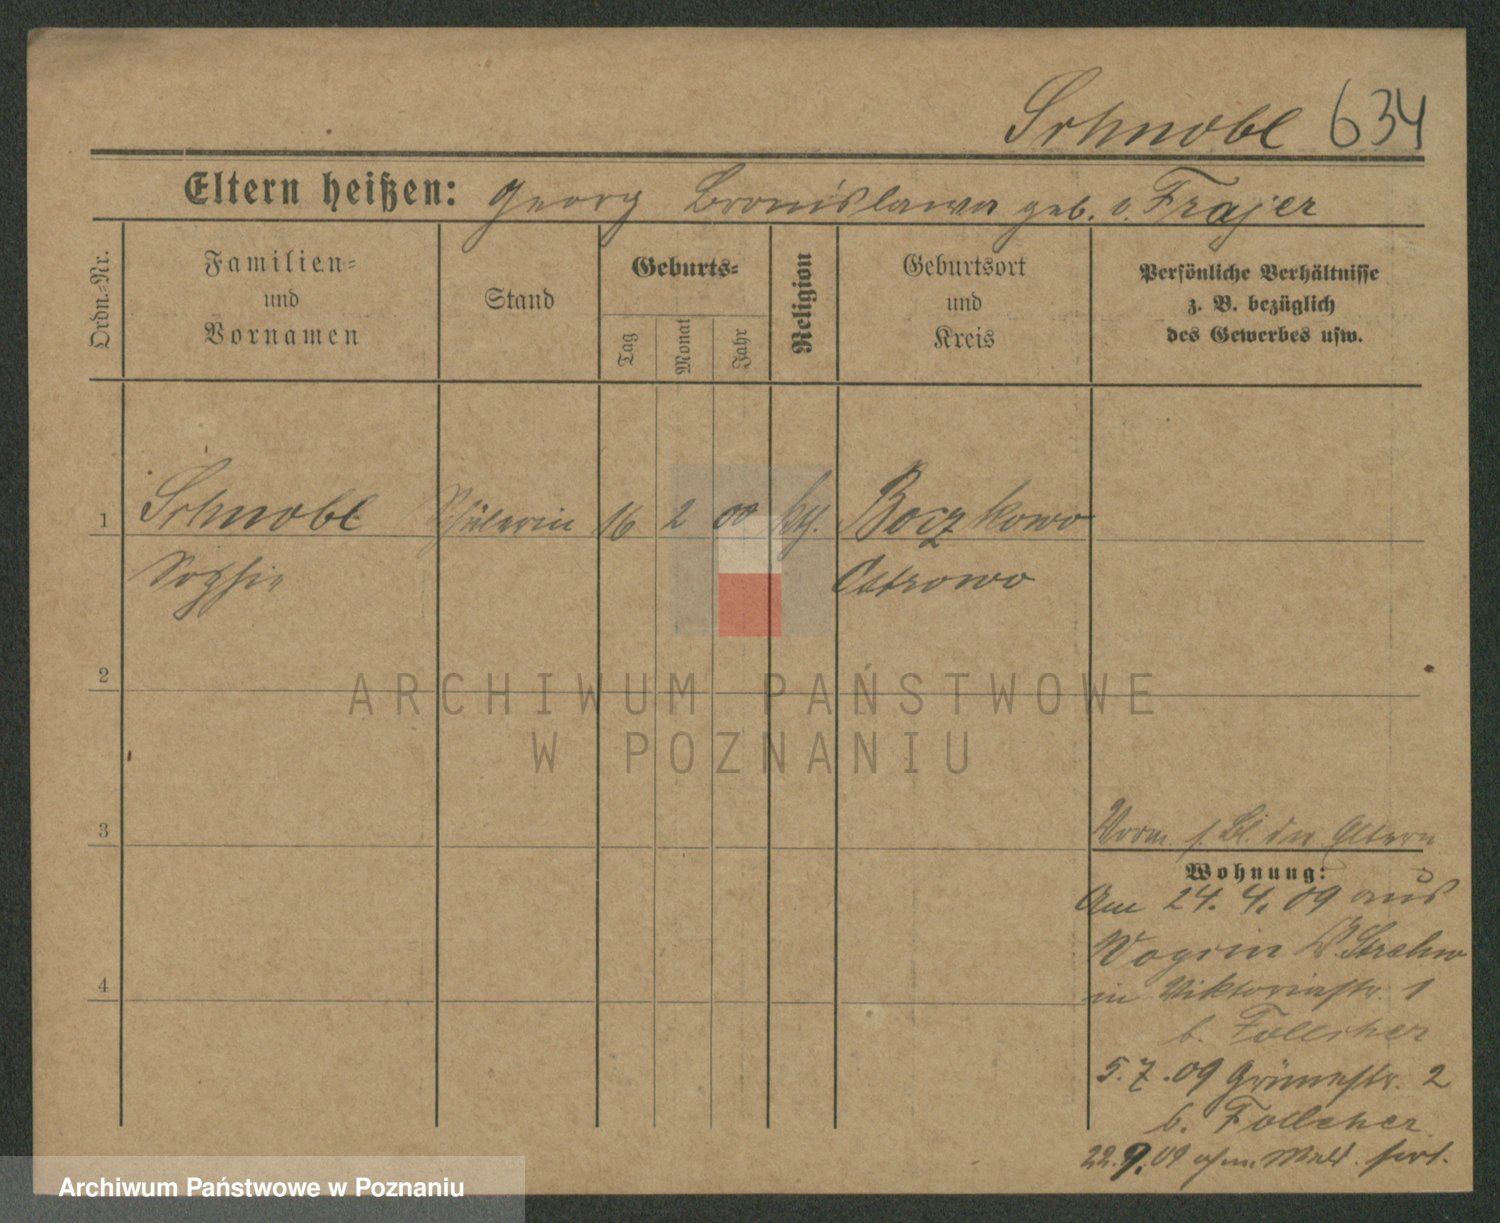 Schnobl 634
Eltern heißen: Georg Bronislawa geb. v. Frajer
Ordn.-Nr.
Familien-
und
Vornamen
Stand
Geburts-
Tag
Monat
Jahr
Religion
Geburtsort
und
Kreis
Persönliche Verhältnisse
z. B. bezüglich
des Gewerbes usw.
1 Schnobl Schülerin 16 2 00 kth. Boczkowo
Sophie Ostrowo
2
ARCHIWUM PAŃSTWOWE
W POZNANIU
3
Vorm. s. Bl. der Eltern
Wohnung:
Am 24. 4. 09 aus
in Viktoriastr. 1
b. Follcher
5. 7. 09 Grünestr. 2
b. Follcher
22. 9. 09 ohne Meld. fort.
4
Archiwum Państwowe w Poznaniu